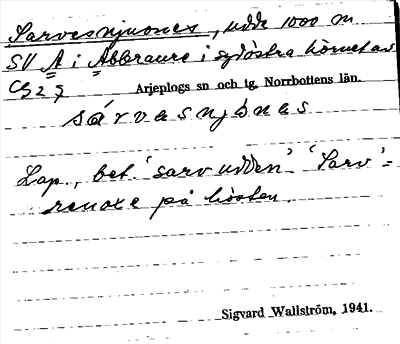 Sarvesnjuones, udde 1000 m
SV A i Abbraure i sydöstra hörnet av
C327 Arjeplogs sn och tg, Norrbottens län.
sárvasnjònas
Lap., bet. 'sarvudden'. 'Sarv' =
renoxe på hösten.
Sigvard Wallström, 1941.